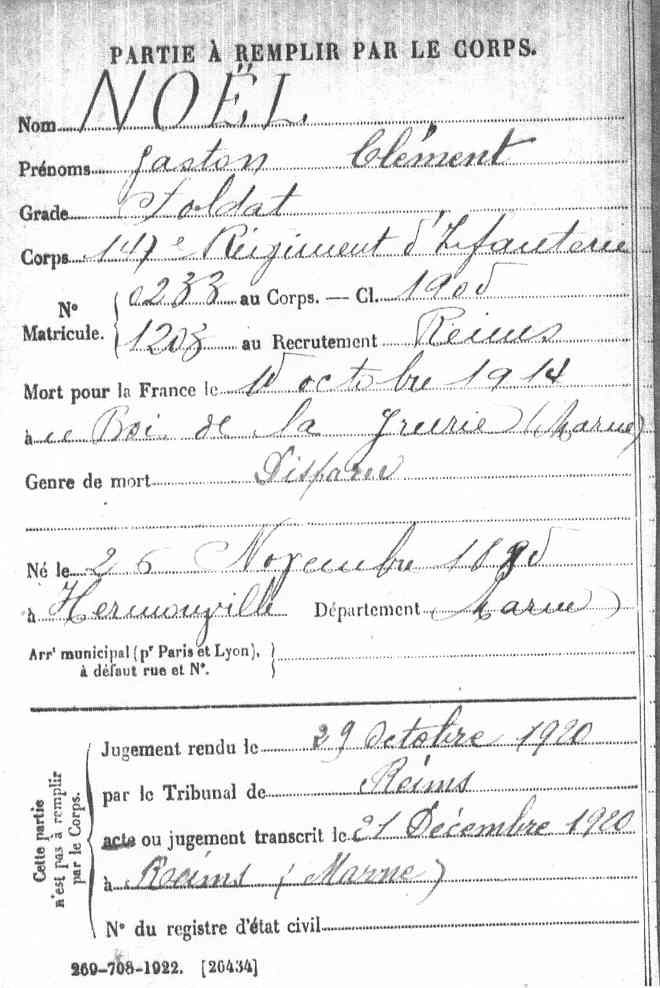 PARTIE À REMPLIR PAR LE CORPS.
Nom NOËL
Prénoms Gaston Clément
Grade Soldat
Corps 147e Régiment d'Infanterie
No Matricule. 0233 au Corps. — Cl. 1905
1203 au Recrutement Reims
Mort pour la France le 10 octobre 1914
à Bois de la Grurie (Marne)
Genre de mort Disparu
Né le 26 Novembre 1885
à Hermonville Département (Marne)
Arrt municipal (pr Paris et Lyon),
à défaut rue et No.
Cette partie n'est pas à remplir par le Corps.
Jugement rendu le 29 Octobre 1920
par le Tribunal de Reims
acte ou jugement transcrit le 21 Décembre 1920
à Reims (Marne)
No du registre d'état civil
269-708-1922. [26434]